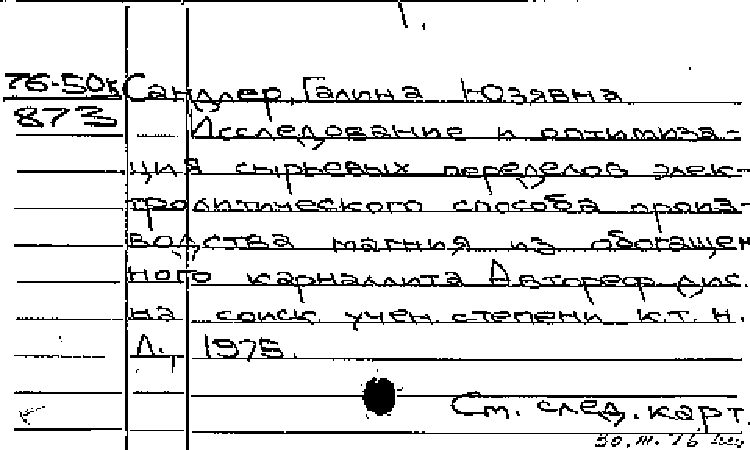 1.
76-50к Сандлер, Галина Юзявна
873 Исследование и оптимиза-
ция сырьевых переделов элек-
тролитического способа произ-
водства магния из обогащен
ного карналлита Автореф. дис.
на соиск. учен. степени к.т.н.
Л., 1975.
См. след. карт.
30.III.76